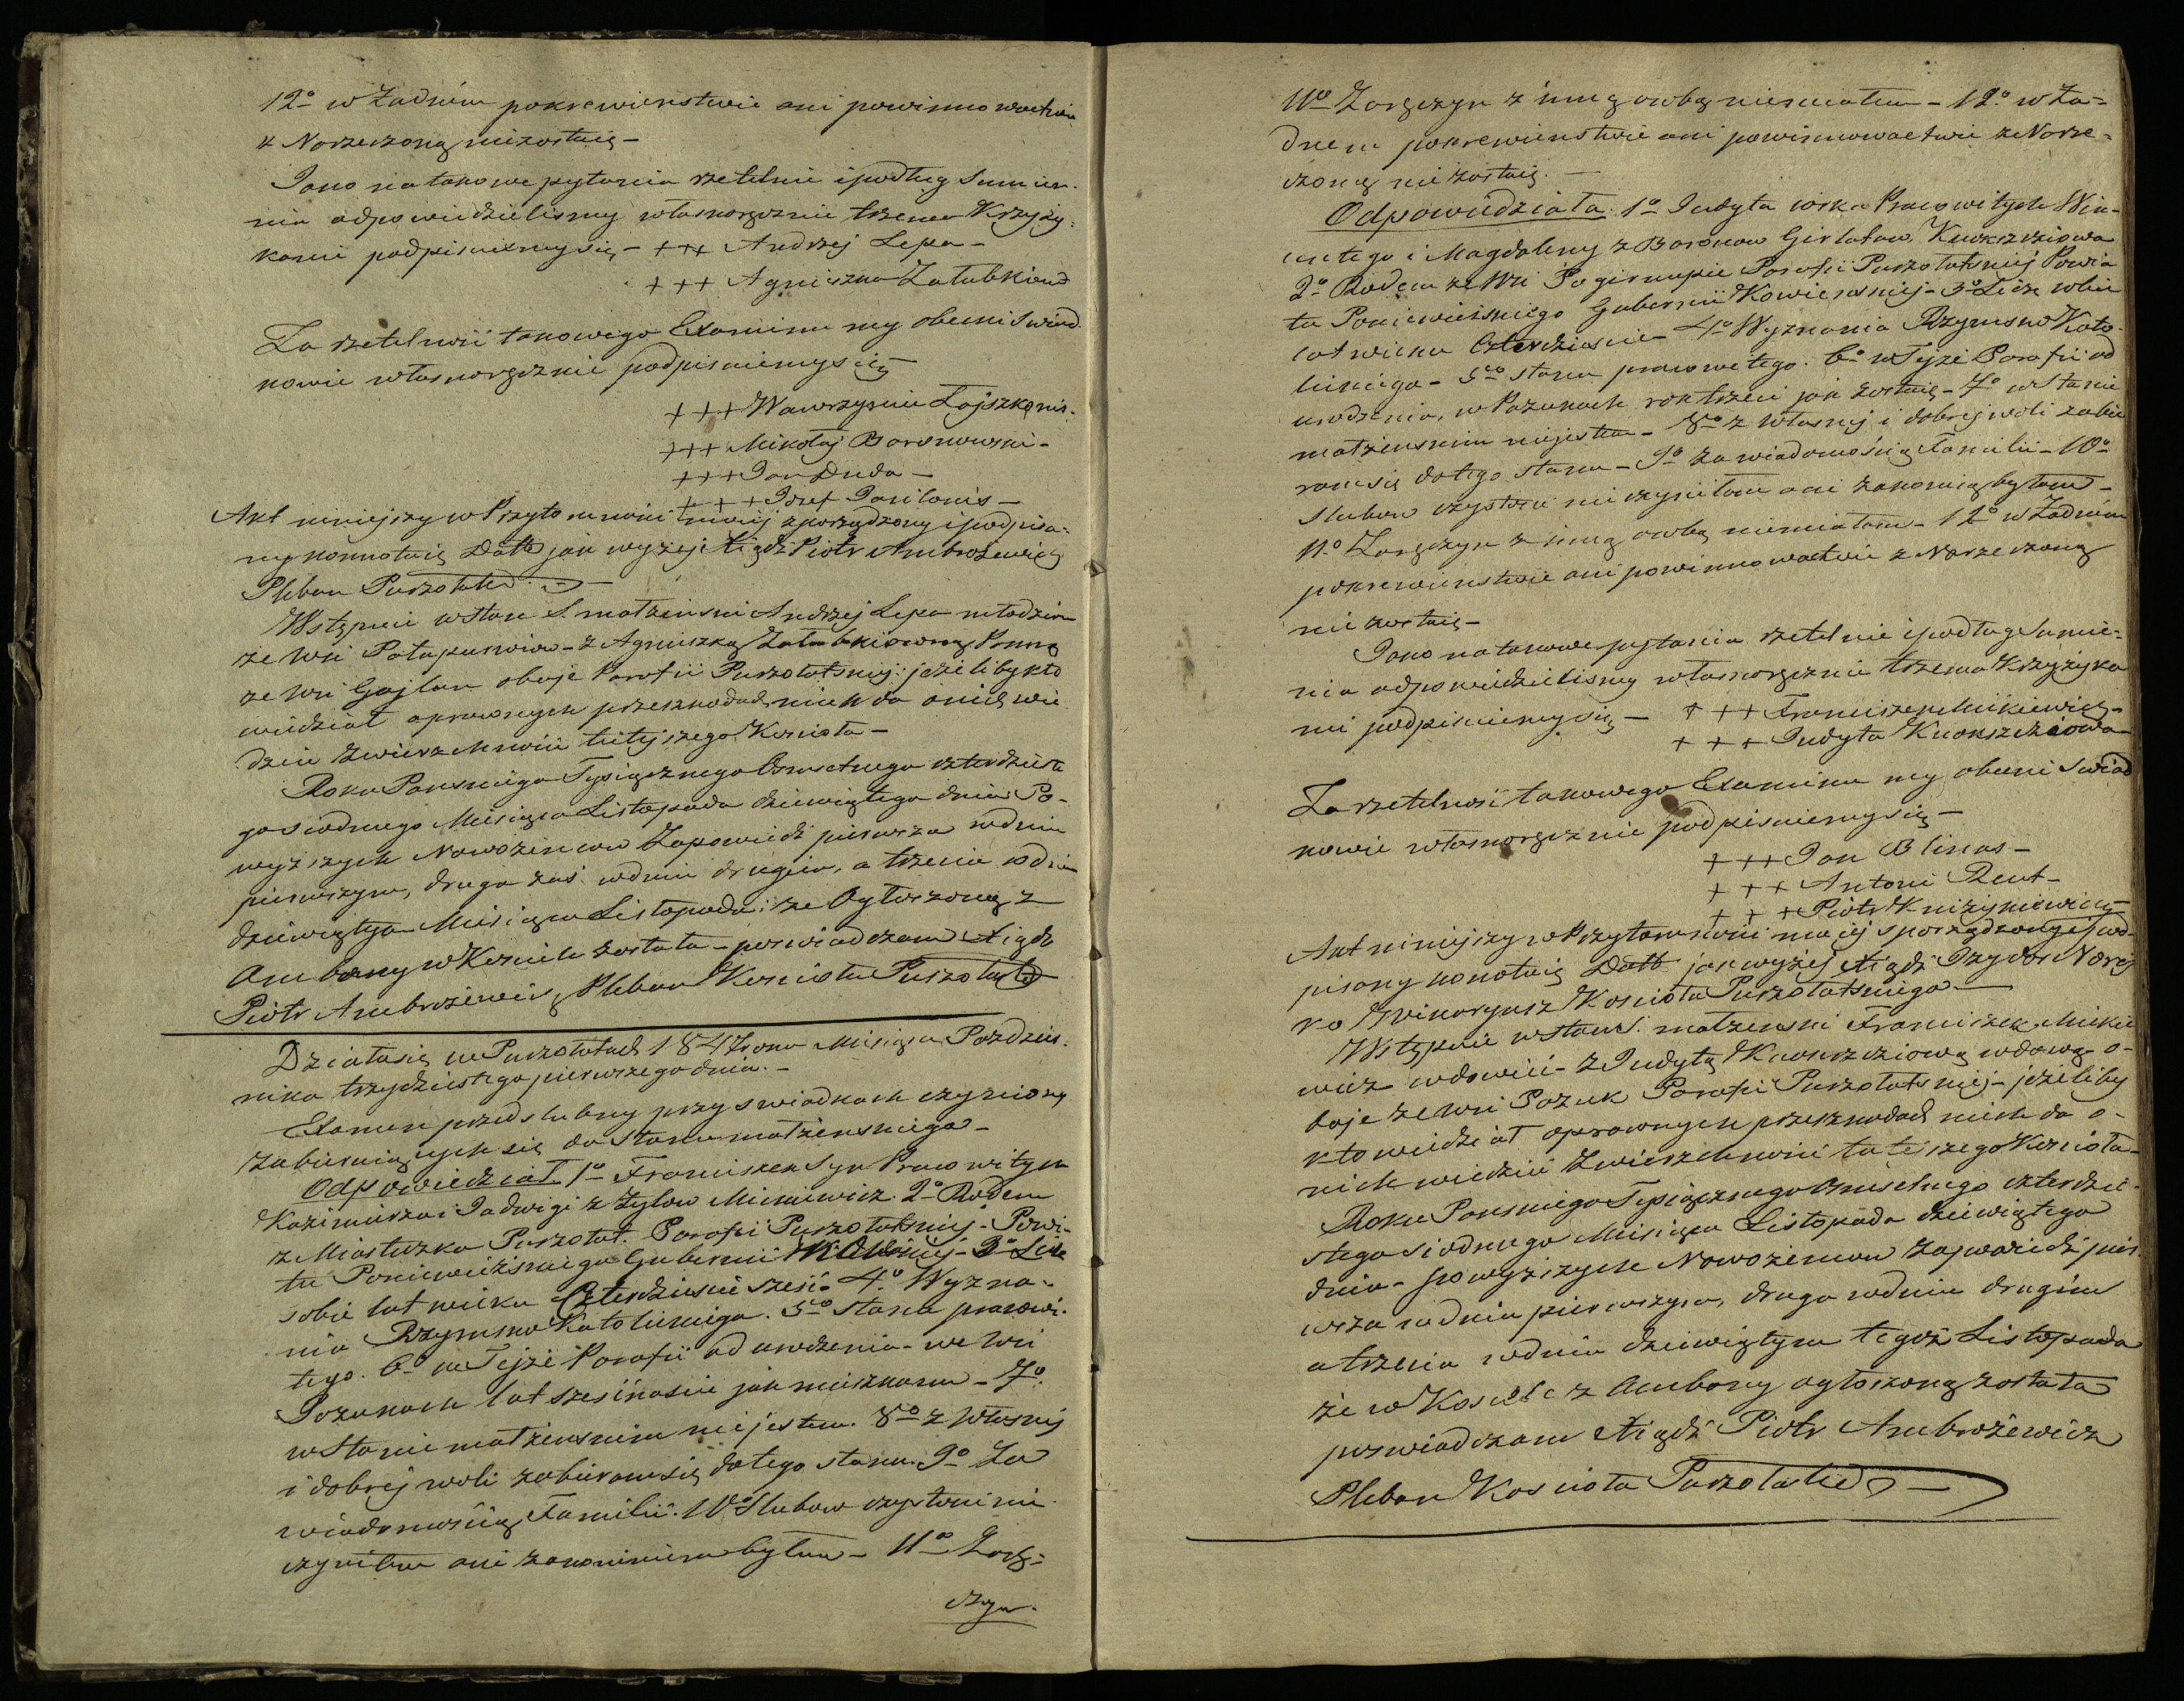 12o w żadném pokrewienstwie ani powinnowactwie
z Narzeczoną niezostaię -
Jako na takowe pytania rzetelnie i podług Sumie-
nia odpowiedzielismy własnoręcznie trzema Krzyży-
kami podpisuiemysię - +++ Andrzej Lepa -
+++ Agnieszka
Za rzetelność takowego Examinu my obecni Swiad-
kowie własnoręcznie podpisuiemysię
+++ Wawrzyniec
+++ Mikołaj Baranowski -
+++ Jan Duda -
+++ Jozef Danilonis -
Akt niniejszy w Przytomności moiéj sporządzony i podpisa-
ny konnotuię Datt jak wyżej Xiądz Piotr Ambrożewicz
Pleban Puszołatts
Wstępuie w Stan S. małżenski Andrzej Lepa młodzian
ze Wsi z Agnieszką Panną
ze Wsi Gajlun oboje Parafii Puszołatskiej: jeżeliby kto
wiedział o prawnych przeszkodach niech da onich wie-
dzieć Zwierzchności tutejszego Koscioła -
Roku Panskiego Tysiącznego Osmsetnego czterdzieste
go siodmego Miesiąca Listopada dziewiątego dnia Po-
wyższych Nowożencow Zapowiedź pierwsza w dniu
pierwszym, druga zaś w dniu drugim, a trzecia w dniu
dziewiątym Miesiąca Listopada: że Ogłoszoną z
Ambony w Kosciele została - poswiadczam Xiądz
Piotr Ambrożewicz Pleban Koscioła Puszołatts
Działosię w Puszołatach 1847 roku Miesiąca Pazdzier-
nika trzydziestego pierwszego dnia. -
Examen przedslubny przy swiadkach czyniony
Zabieraiących się do Stanu małżenskiego -
Odpowiedział 1o Franciszek Syn Pracowitych
Kazimierza i Jadwigi z Żyłow Mickiewicz. 2o Rodem
z Miasteczka Puszołat. Parafii Puszołatskiej - Powi-
tu Poniewieżskiego Gubernii Kowieńskiej - 3o Licze
sobie lat wieku Czterdziescie szesć - 4o Wyzna-
nia Rzymsko Katolickiego. 5o Stanu pracowi-
tego. 6o w Tejże Parafii od urodzenia - we Wsi
Pozukach lat szesćnascie jak mieszkam - 7o
w Stanie małżenskim nie jestem. 8o z Własnej
i dobrej woli zabieramsię do tego stanu. 9o Za
wiadomością Familii. 10o Slubow czystosci nie
czyniłem ani zakonnikiem byłem - 11o Zarę-
czyn.
11o Zaręczyn z inną osobą niemiałem - 12o w Ża-
dnem pokrewienstwie ani powinnowactwie z Narze-
czoną nie zostaię. -
Odpowiedziała 1o Judyta corka Pracowitych Win-
centego i Magdaleny z Baronow
2o Rodem ze Wsi Parafii Puszołatskiej Powia
tu Poniewieżskiego Gubernii Kowienskiej - 3o Licze sobie
lat wieku Czterdziescie - 4o Wyznania Rzymsko Kato-
lickiego - 5o stanu pracowitego. 6o w Tejże Parafii od
urodzenia, w Pozukach rok trzeci jak zostaię - 7o w Stanie
małżenskim niejestem - 8o z Własnej i dobrej woli zabie
ramsię do tego stanu - 9o Za wiadomością Familii - 10o
Slubow czystosci nie czyniłam ani zakonnicą byłam -
11o Zaręczyn z inną osobą niemiałam - 12o w Żadném
pokrewienstwie ani powinnowactwie z Narzeczoną
nie zostaię -
Jako na takowe pytania rzetelnie i podług Sumie-
nia odpowiedzielismy własnoręcznie trzema Krzyżyka
mi podpisuiemysię - +++ Franciszek Mickiewicz -
+++ Judyta
Za rzetelność takowego Examinu my obecni Swiad
kowie własnoręcznie podpisuiemysię -
+++ Jan Blinas -
+++ Antoni Reut -
+++ Piotr
Akt niniejszy w Przytomności mojéj sporządzony i pod-
pisany konotuię Datt jak wyżej Xiądz Izydor Norej
ko Wikaryusz Koscioła Puszołatskiego -
Wstępuie w stan S. małżenski Franciszek Mickie
wicz wdowiec - z Judytą wdową o-
boje ze Wsi Pozuk Parafii Puszołatskiej - jeżeliby
kto wiedział o prawnych przeszkodach niech da o
nich wiedzieć Zwierzchności tutejszego Koscioła -
Roku Panskiego Tysiącznego Osmsetnego czterdzie-
stego siodmego Miesiąca Listopada dziewiątego
dnia - powyższych Nowożencow Zapowiedź pier-
wsza w dniu pierwszym, druga w dniu drugim
a trzecia w dniu dziewiątym tegoż Listopada
że w Kosciele z Ambony ogłoszoną została
poswiadczam Xiądz Piotr Ambrożewicz
Pleban Koscioła Puszołatts